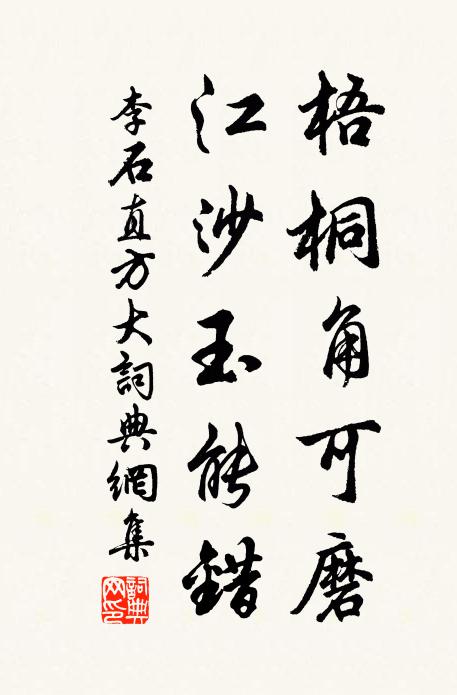 梧桐角可磨
江沙玉能錯
李石直方大詞典網集
詞典網印